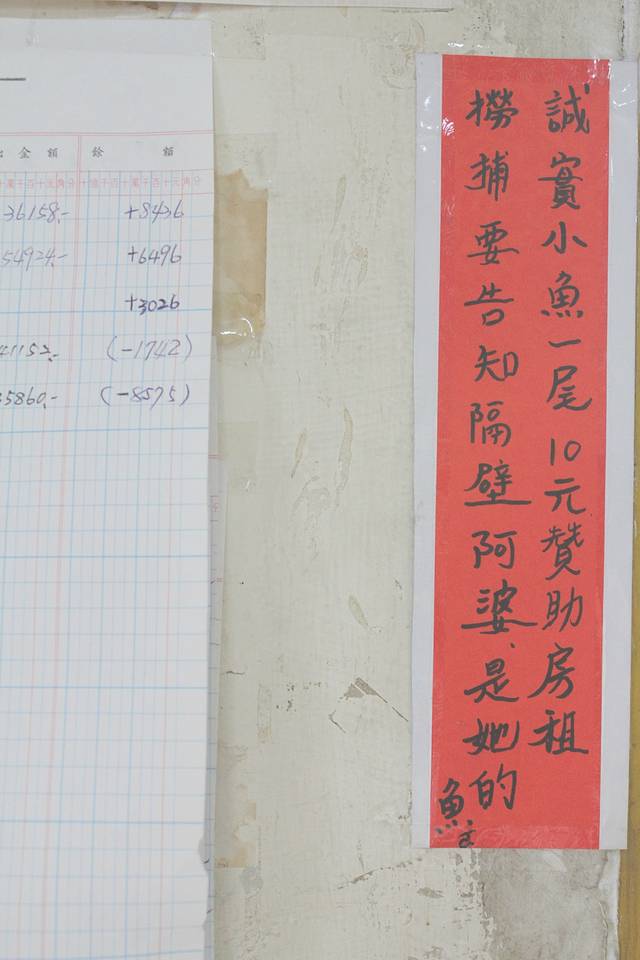 金額 餘額
36158.- +8436
54924.- +6496
+3026
41152.- (-1742)
35860.- (-8575)
誠實小魚一尾10元贊助房租
撈捕要告知隔壁阿婆是她的
魚